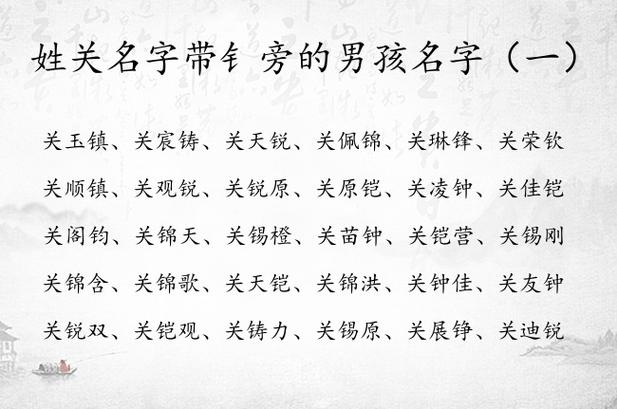 姓关名字带钅旁的男孩名字（一）
关玉镇、关宸铸、关天锐、关佩锦、关琳锋、关荣钦
关顺镇、关观锐、关锐原、关原铠、关凌钟、关佳铠
关阁钧、关锦天、关锡橙、关苗钟、关铠营、关锡刚
关锦含、关锦歌、关天铠、关锦洪、关钟佳、关友钟
关锐双、关铠观、关铸力、关锡原、关展铮、关迪锐